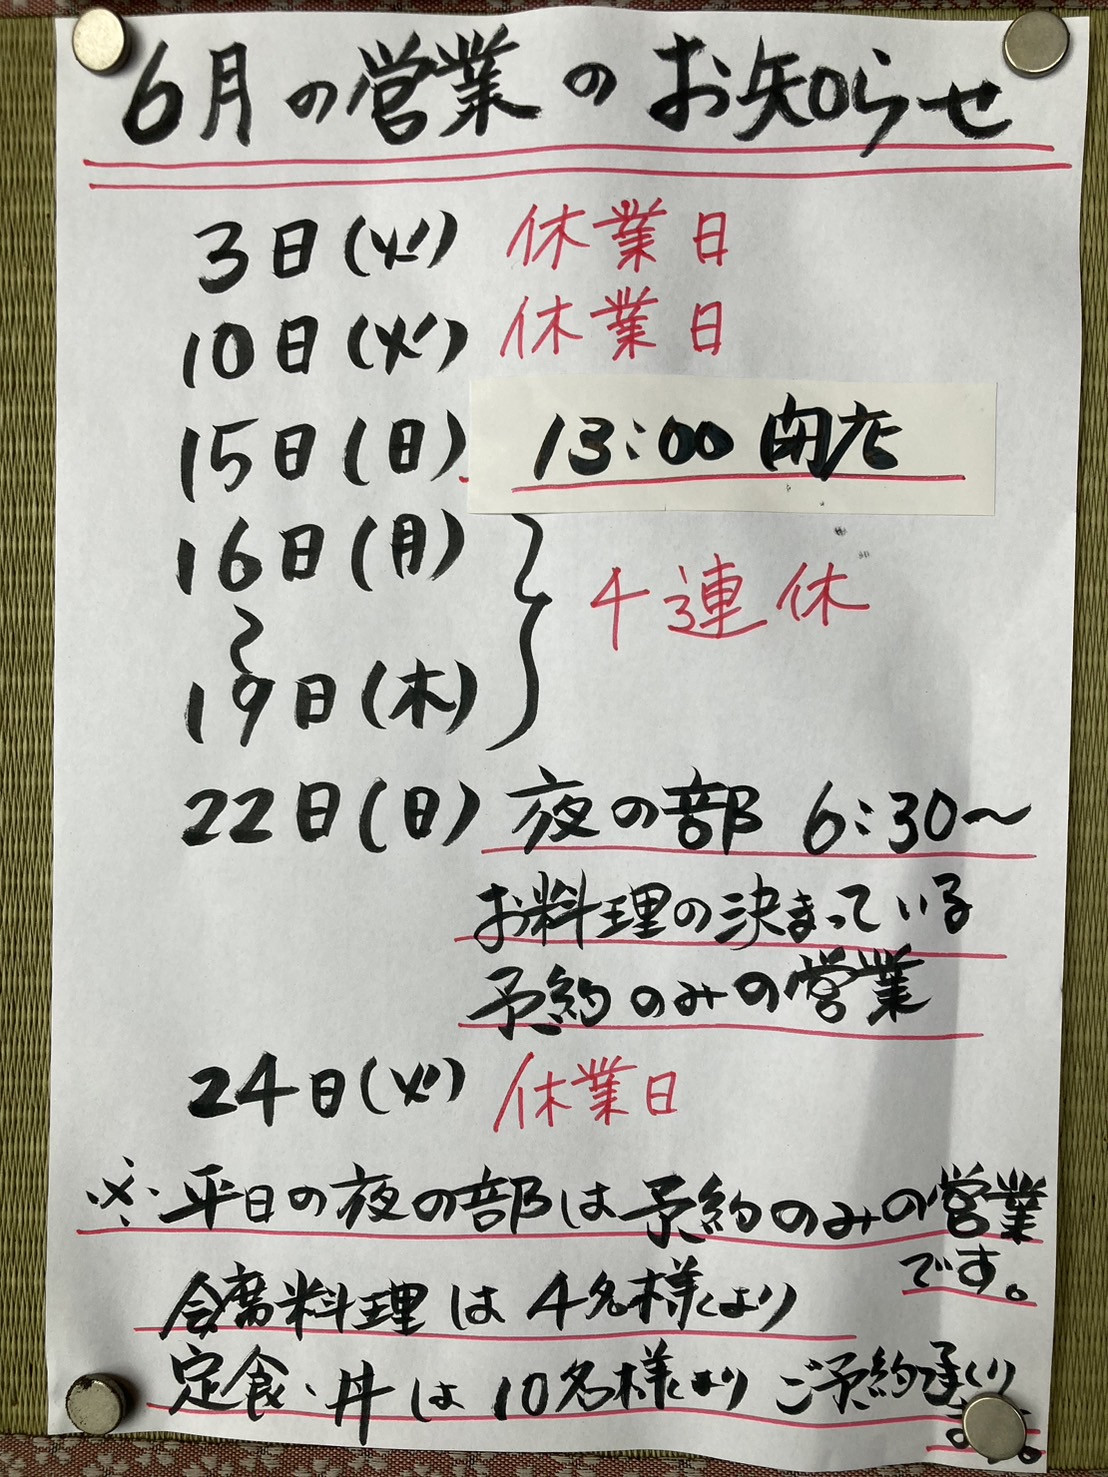 6月の営業のお知らせ
3日(火) 休業日
10日(火) 休業日
15日(日) 13:00 閉店
16日(月)
〜
4連休
19日(木)
22日(日) 夜の部 6:30〜
お料理の決まっている
予約のみの営業
24日(火) 休業日
※平日の夜の部は予約のみの営業
です。
会席料理は4名様より
定食・丼は10名様より ご予約承り
ます。